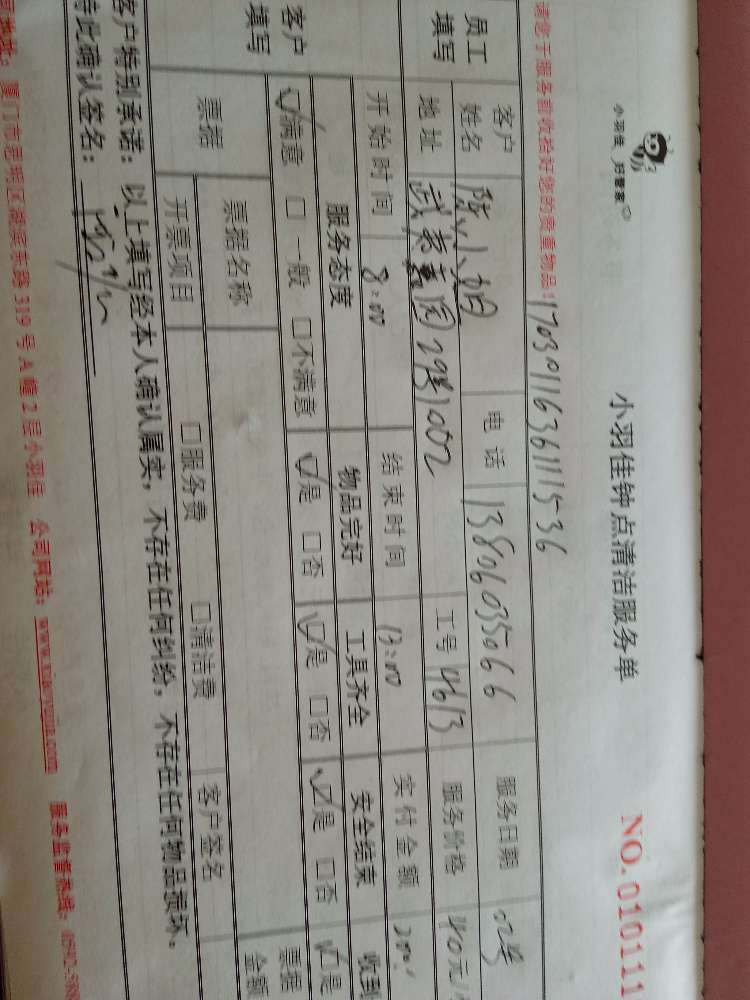 小羽佳 好管家
小羽佳钟点清洁服务单
NO.010111
请您于服务前收拾好您的贵重物品! 17030116361111536
员工填写
客户姓名 陈小姐 电话 13806035066 服务日期
地址 29 1002 工号 4613 服务价格 40元/
开始时间 8:00 结束时间 13:00 实付金额
客户填写
服务态度 物品完好 工具齐全 安全结束 收到
☑满意 □一般 □不满意 ☑是 □否 ☑是 □否 ☑是 □否 ☑是
票据 票据名称 票据金额
开票项目 □服务费 □清洁费 客户签名
客户特别承诺：以上填写经本人确认属实，不存在任何纠纷，不存在任何物品损坏。
特此确认签名：
司地址：厦门市思明区湖滨东路 319 号 A 幢 2 层小羽佳 公司网站：www.xiaoyujia.com 服务监督热线：0592-588